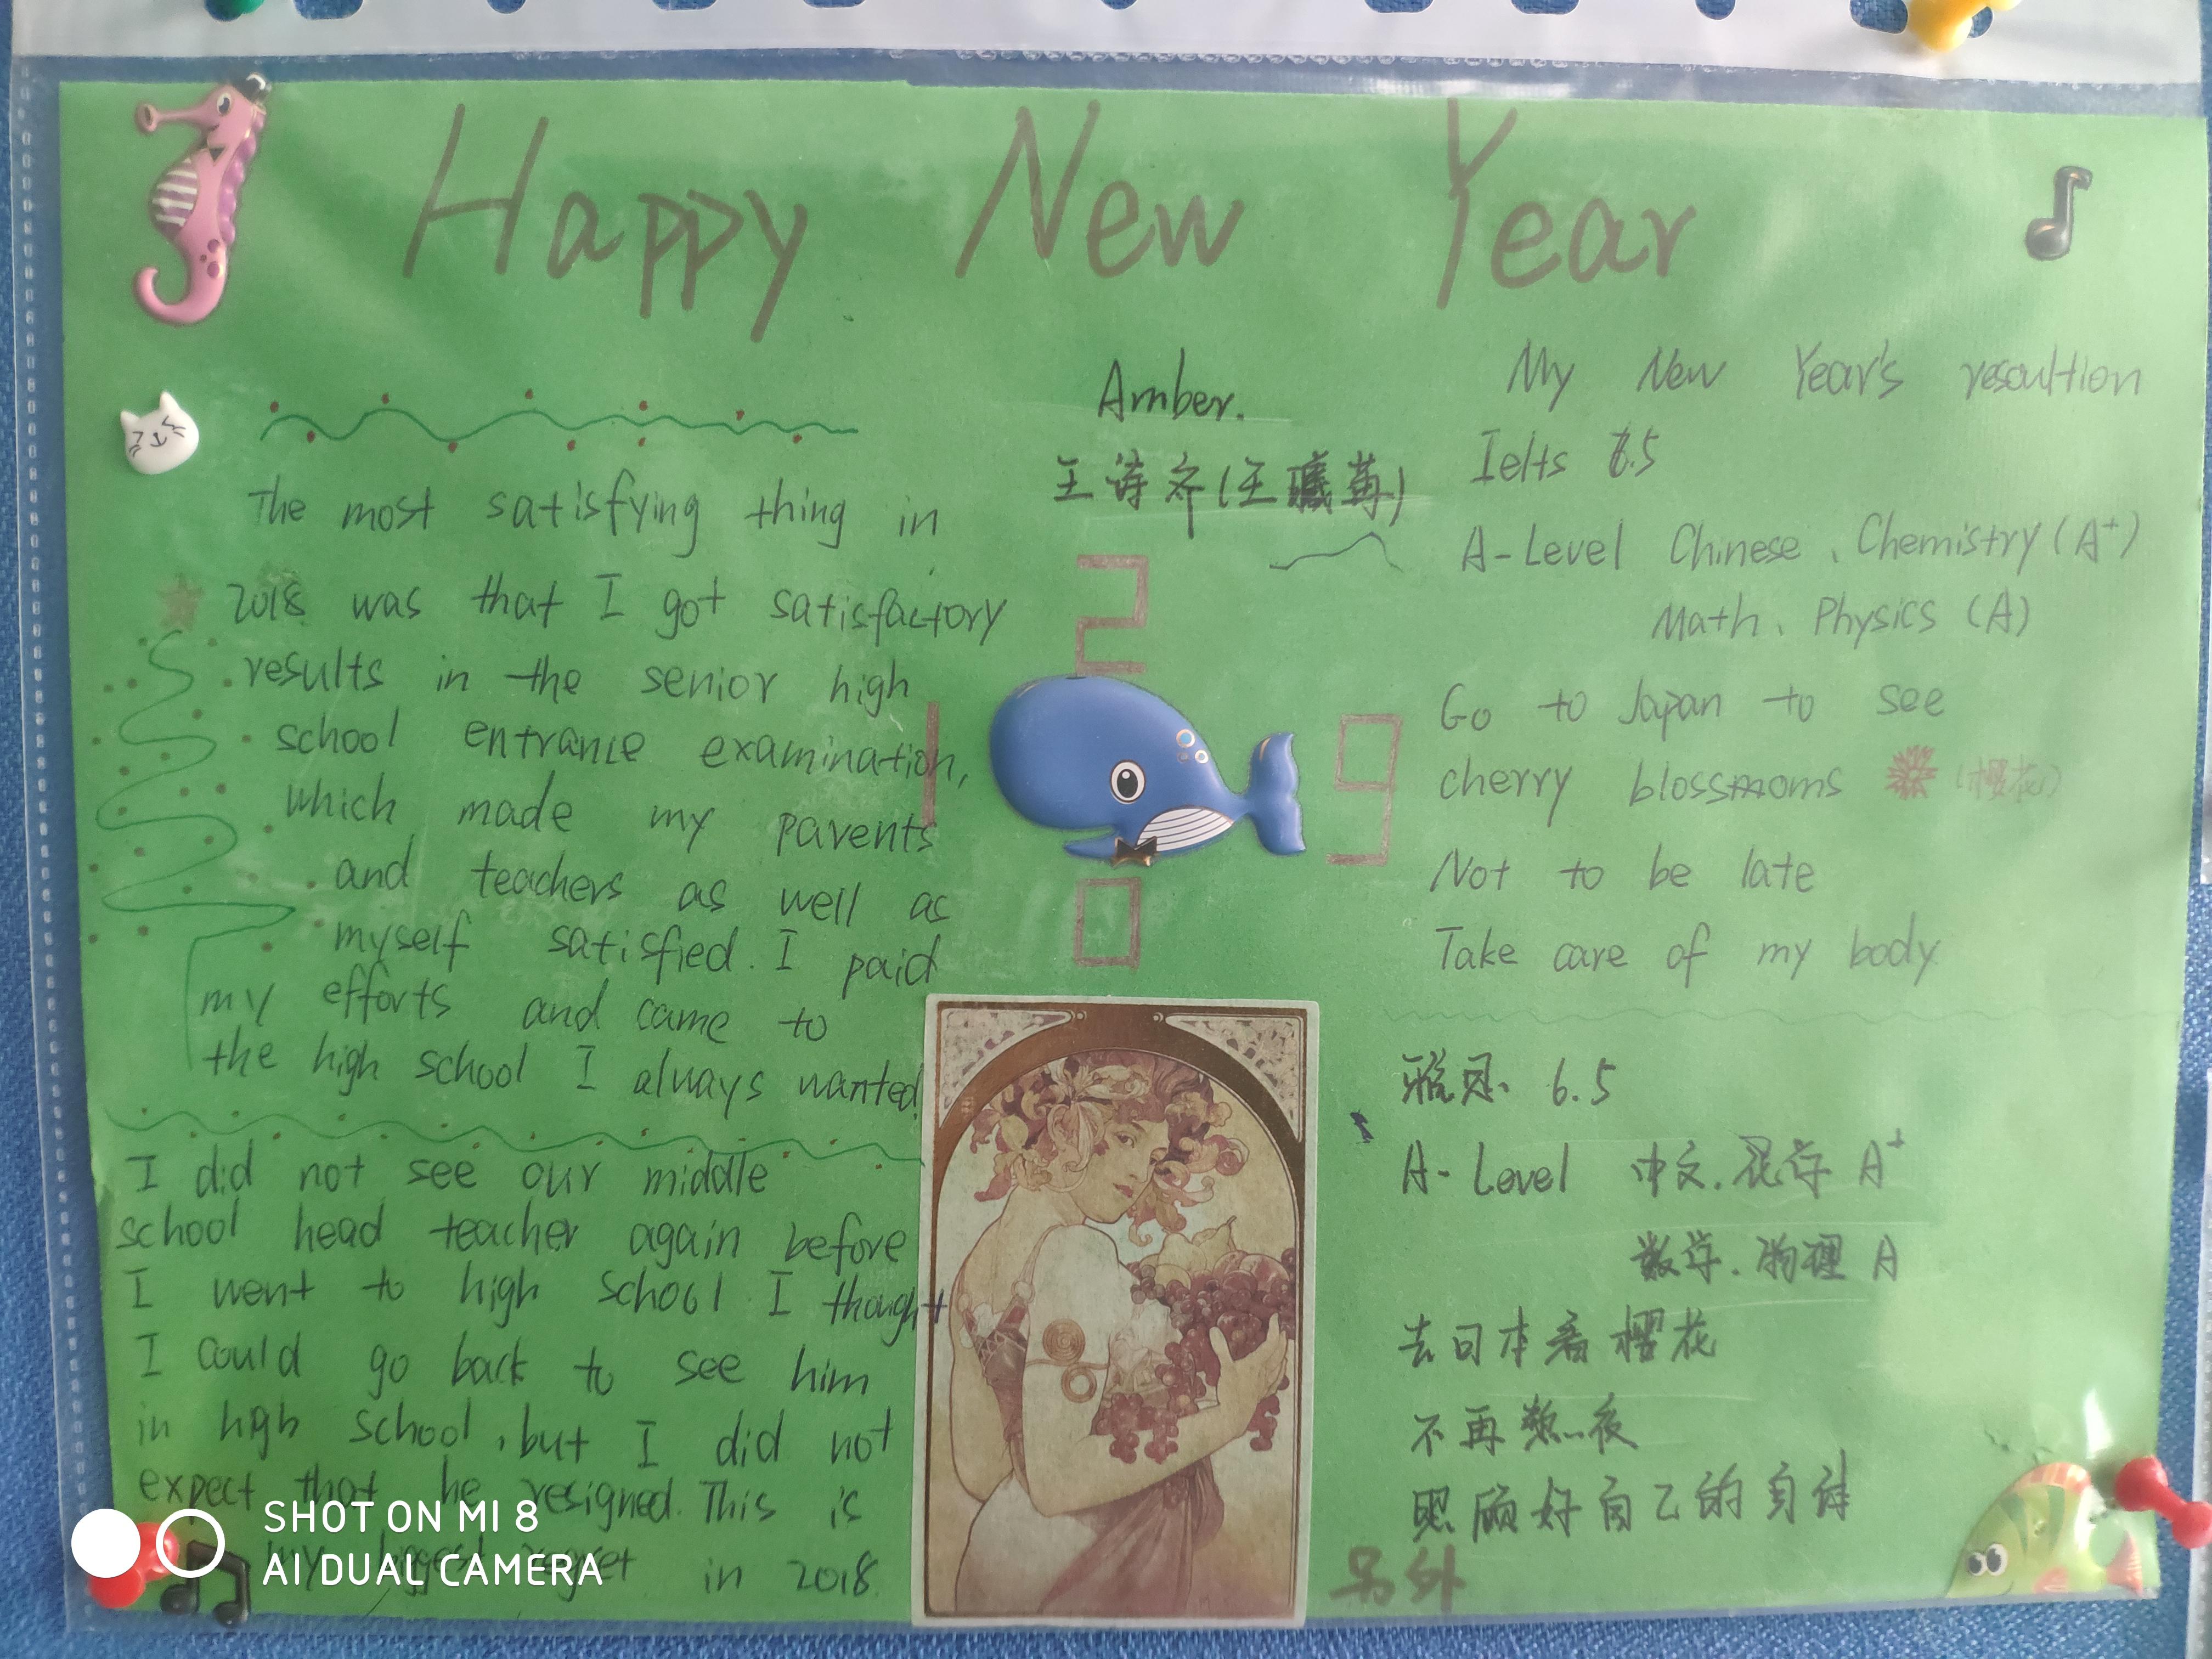 Happy New Year
The most satisfying thing in
2018 was that I got satisfactory
results in the senior high
school entrance examination,
which made my parents
and teachers as well as
myself satisfied. I paid
my efforts and came to
the high school I always wanted.
I did not see our middle
school head teacher again before
I went to high school I thought
I could go back to see him
in high school, but I did not
expect that he resigned. This is
my biggest regret in 2018.
SHOT ON MI 8
AI DUAL CAMERA
Amber.
王诗齐(王
2
1
9
0
My New Year's resoultion
Ielts 6.5
A-Level Chinese、Chemistry (A+)
Math、Physics (A)
Go to Japan to see
cherry blossmoms (樱花)
Not to be late
Take care of my body
雅思 6.5
A-Level 中文.化学 A+
数学.物理 A
去日本看樱花
不再熬夜
照顾好自己的身体
另外